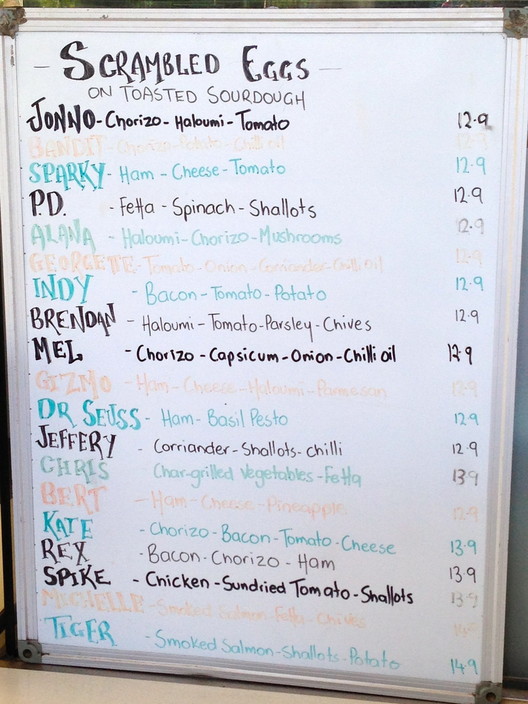 - SCRAMBLED EGGS -
ON TOASTED SOURDOUGH
JONNO - Chorizo - Haloumi - Tomato 12.9
BANDIT - Chorizo - Potato - Chilli oil
SPARKY - Ham - Cheese - Tomato 12.9
P.D. - Fetta - Spinach - Shallots 12.9
ALANA - Haloumi - Chorizo - Mushrooms 12.9
GEORGETE - Tomato - Onion - Corriander - Chilli oil 12.9
INDY - Bacon - Tomato - Potato 12.9
BRENDAN - Haloumi - Tomato - Parsley - Chives 12.9
MEL - Chorizo - Capsicum - Onion - Chilli oil 12.9
GIZMO - Ham - Cheese - Haloumi - Parmesan 12.9
DR SEUSS - Ham - Basil Pesto 12.9
JEFFERY - Corriander - Shallots - chilli 12.9
CHRIS Char-grilled Vegetables - Fetta 13.9
BERT - Ham - Cheese - Pineapple 12.9
KATE - Chorizo - Bacon - Tomato - Cheese 13.9
REX - Bacon - Chorizo - Ham 13.9
SPIKE - Chicken - Sundried Tomato - Shallots 13.9
MICHELLE - Smoked Salmon - Fetta - Chives
TIGER - Smoked Salmon - Shallots - Potato 14.9